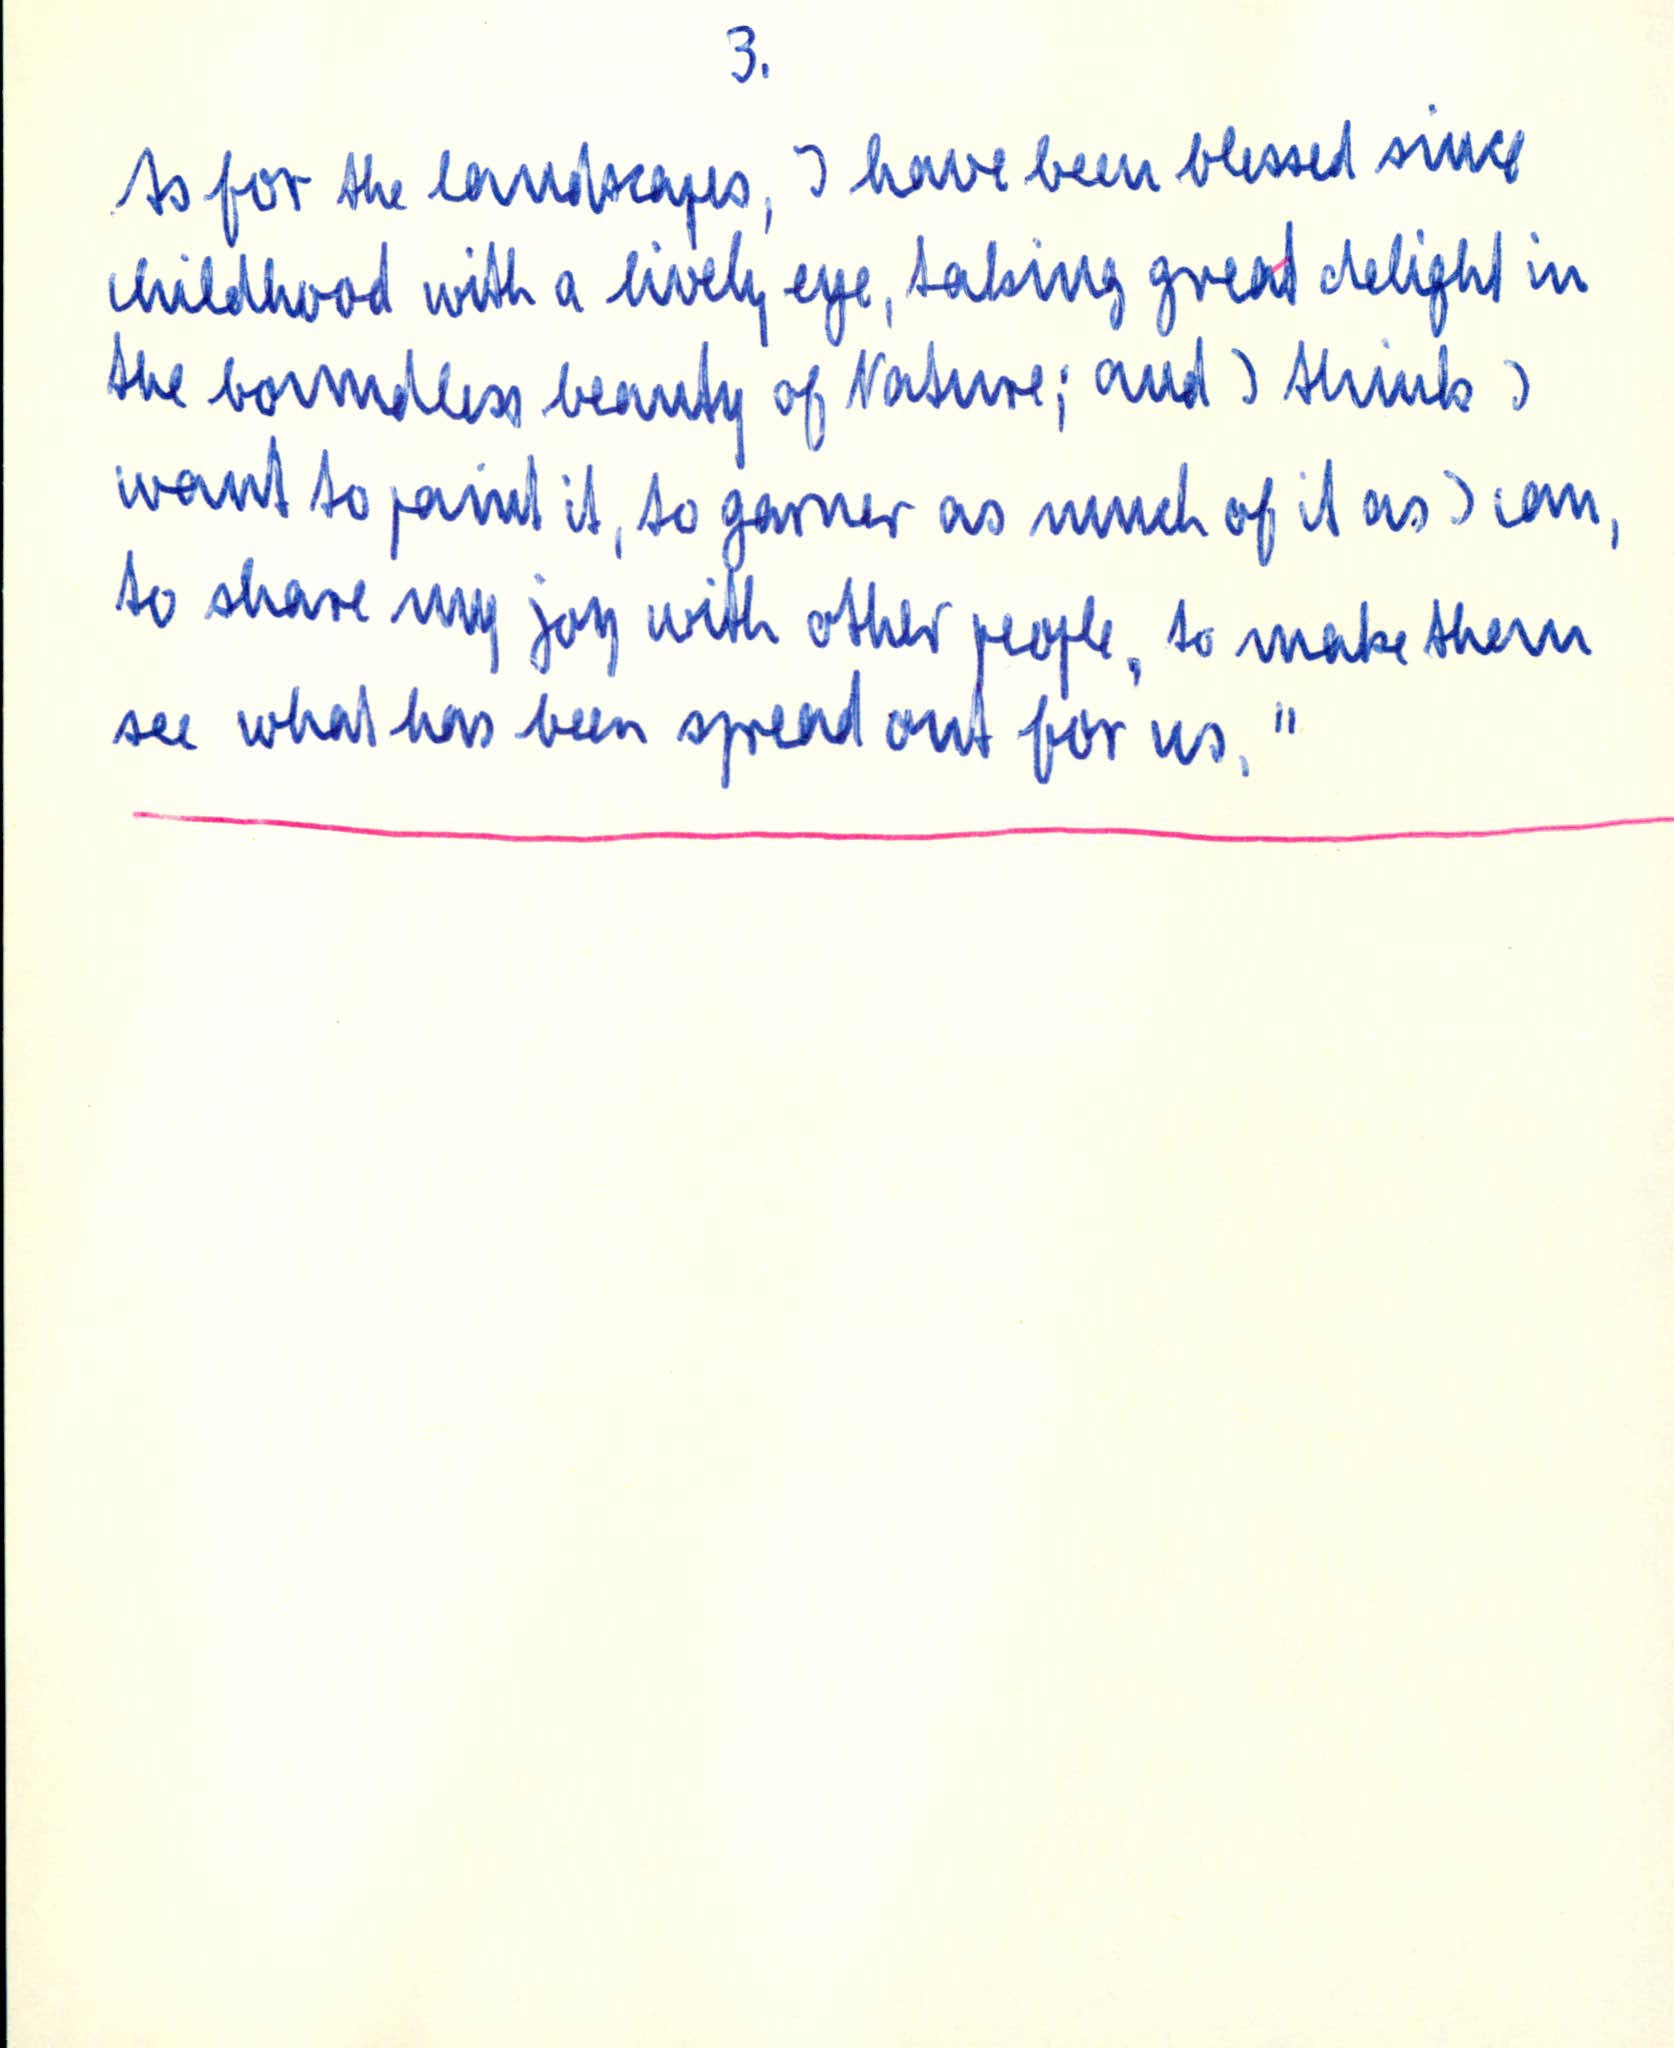 3.
As for the landscapes, I have been blessed since
childhood with a lively eye, taking great delight in
the boundless beauty of Nature; and I think I
want to paint it, to garner as much of it as I can,
to share my joy with other people, to make them
see what has been spread out for us."